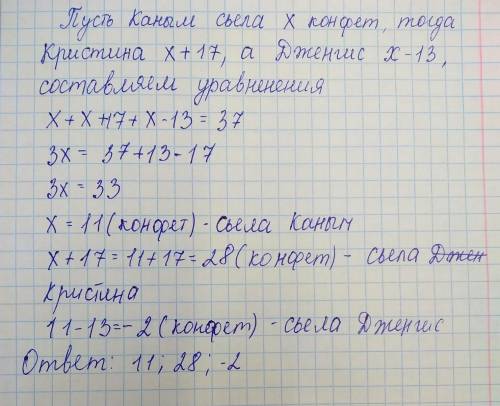 Пусть Каным сьела х конфет, тогда
Кристина х+17, а Дженгис х-13,
составляем уравненения
х+х+17+х-13=37
3х=37+13-17
3х=33
х=11(конфет)-сьела Каным
х+17=11+17=28(конфет)- сьела Джен
Кристина
11-13=-2(конфет)-сьела Дженгис
Ответ: 11; 28; -2